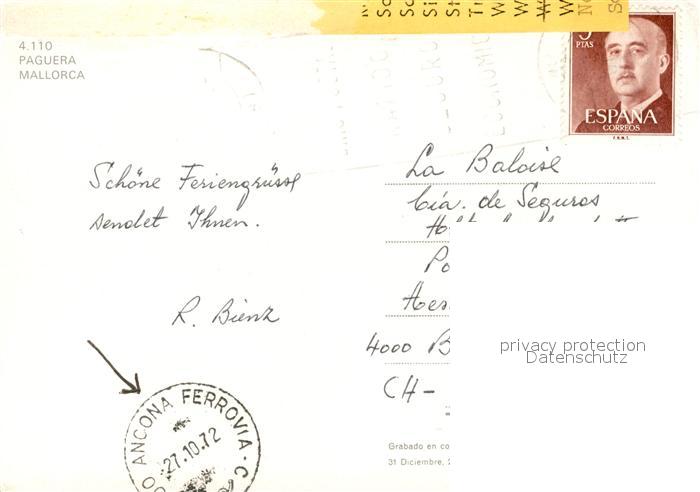 4.110
PAGUERA
MALLORCA
5
PTAS
ESPAÑA
CORREOS
F.N.M.T.
Schöne Feriengrüsse
sendet Ihnen.
R. Bienz
La Baloise
Cía. de Seguros
Po
Aes
4000 B
CH-
privacy protection
Datenschutz
ANCONA FERROVIA
27.10.72
Grabado en co
31 Diciembre,